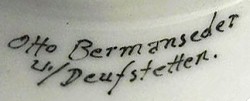 Otto Bermanseder
u./Deufstetten.